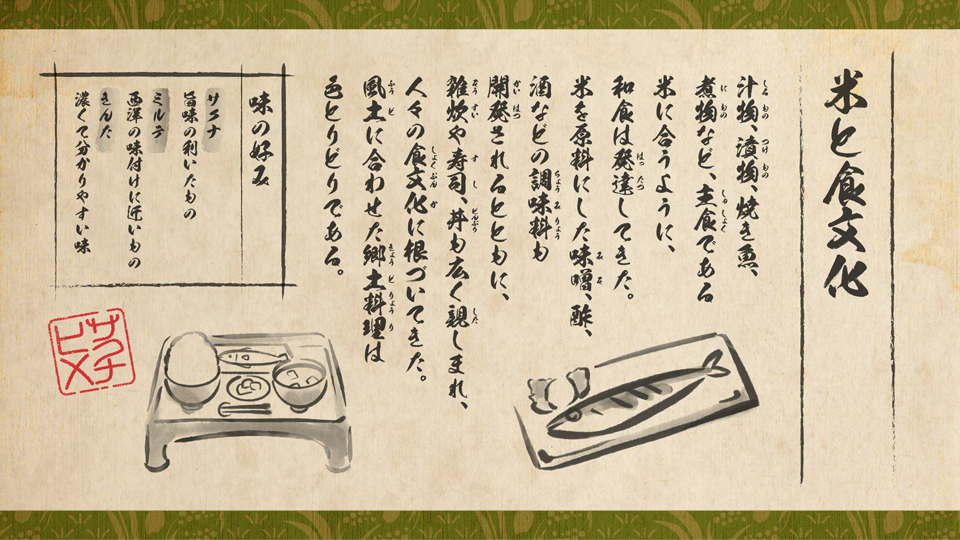 米と食文化
汁物、漬物、焼き魚、
煮物など、主食である
米に合うように、
和食は発達してきた。
米を原料にした味噌、酢、
酒などの調味料も
開発されるとともに、
雑炊や寿司、丼も広く親しまれ、
人々の食文化に根づいてきた。
風土に合わせた郷土料理は
色とりどりである。
味の好み
サクナ
旨味の利いたもの
ミルテ
西洋の味付けに近いもの
きんた
濃くて分かりやすい味
サクナヒメ